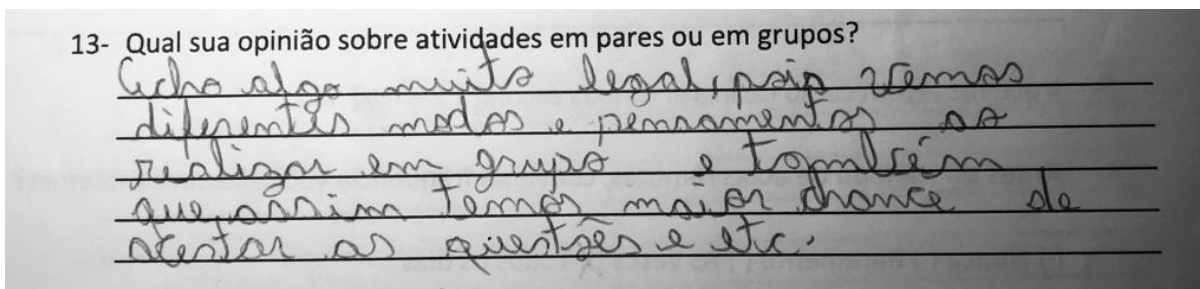 13- Qual sua opinião sobre atividades em pares ou em grupos?
Acho algo muito legal, pois vemos
diferentes modos e pensamentos ao
realizar em grupo e também
que, assim temos maior chance de
acertar as questões e etc.